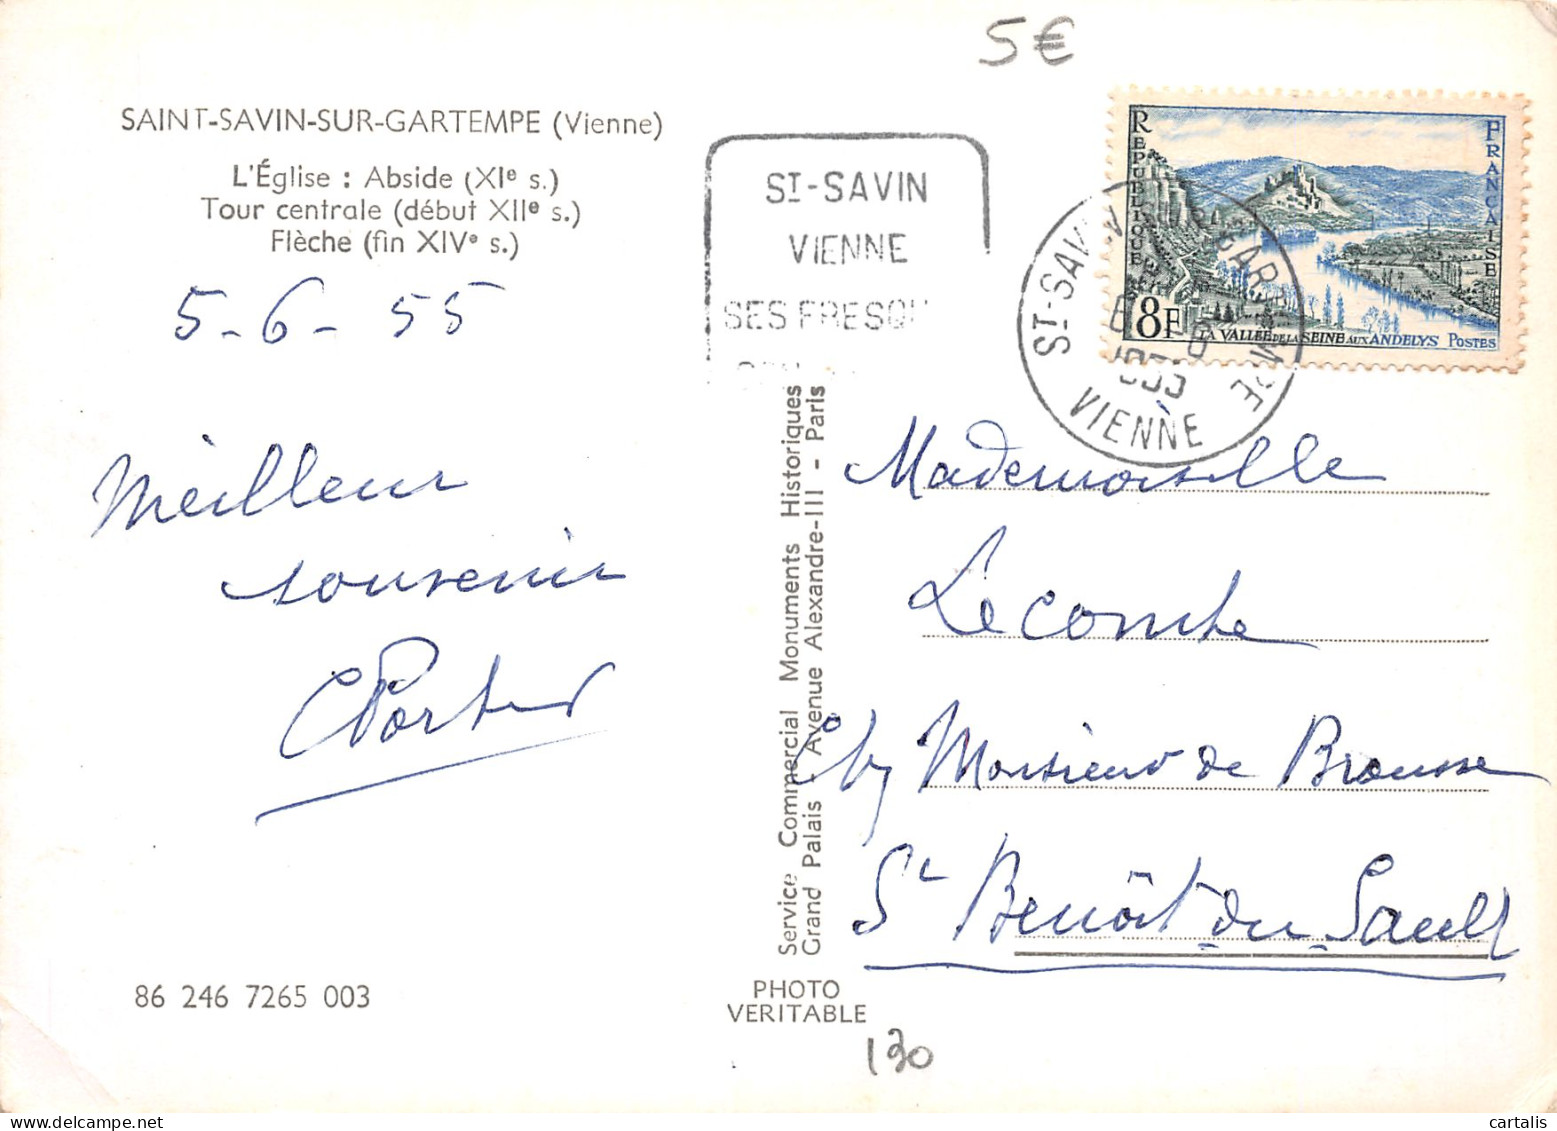 5€
SAINT-SAVIN-SUR-GARTEMPE (Vienne)
L'Église : Abside (XIe s.)
Tour centrale (début XIIe s.)
Flèche (fin XIVe s.)
5-6-55
Meilleur
souvenir
86 246 7265 003
ST-SAVIN
VIENNE
SES FRESQU
ST-SAVIN
VIENNE
RÉPUBLIQUE
FRANÇAISE
8F
LA VALLÉE DE LA SEINE AUX ANDELYS POSTES
Service Commercial Monuments Historiques
Grand Palais - Avenue Alexandre-III - Paris
PHOTO
VERITABLE
130
Mademoiselle
Lecomte
Monsieur de Brousse
St Benoît-du-Sault
cartalis